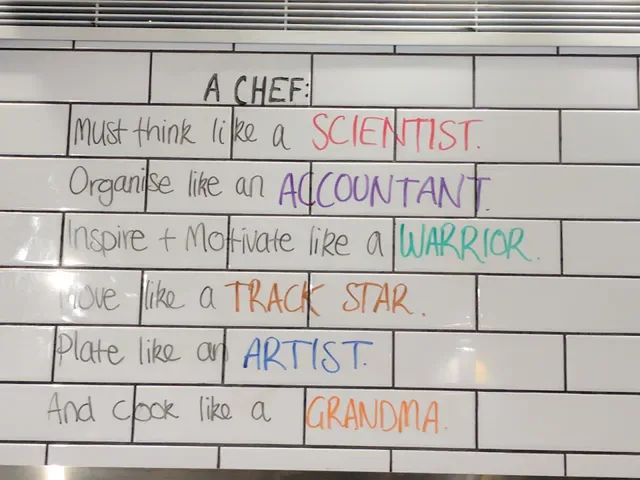 A CHEF:
Must think like a SCIENTIST.
Organise like an ACCOUNTANT.
Inspire + Motivate like a WARRIOR.
Move like a TRACK STAR.
Plate like an ARTIST.
And cook like a GRANDMA.